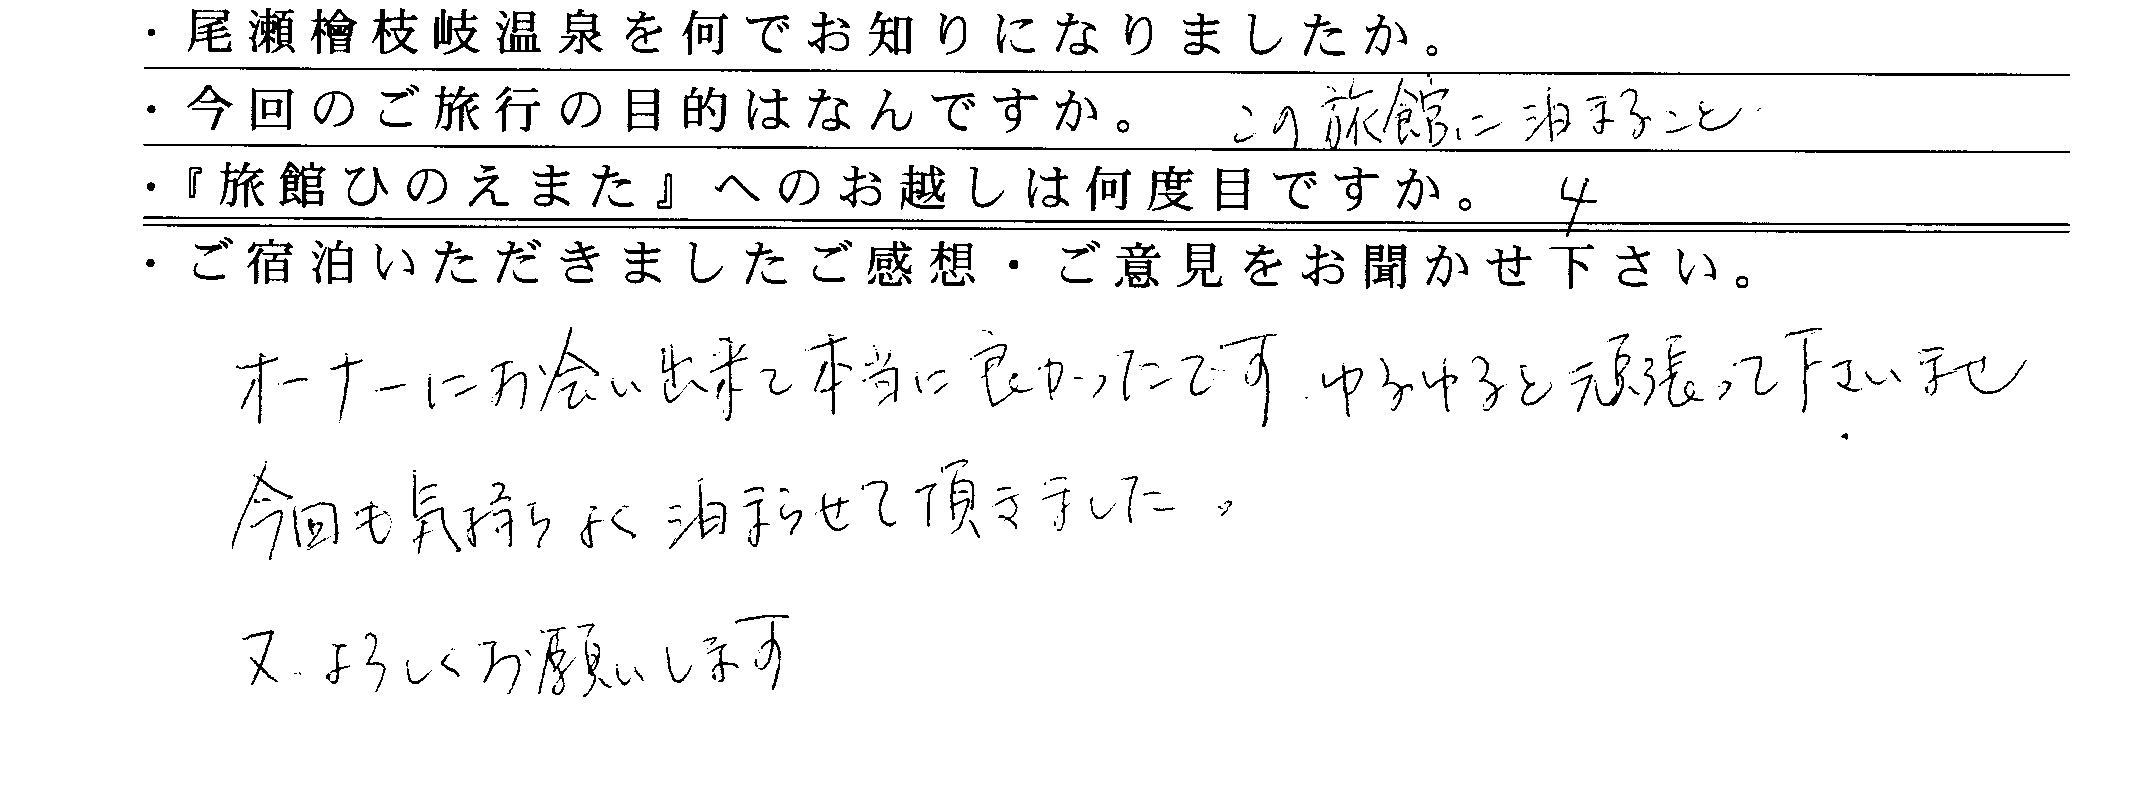 ・尾瀬檜枝岐温泉を何でお知りになりましたか。
・今回のご旅行の目的はなんですか。 この旅館に泊まること
・『旅館ひのえまた』へのお越しは何度目ですか。 4
・ご宿泊いただきましたご感想・ご意見をお聞かせ下さい。
オーナーにお会い出来て本当に良かったです。ゆるゆると頑張って下さいませ
今回も気持ちよく泊まらせて頂きました。
又、よろしくお願いします